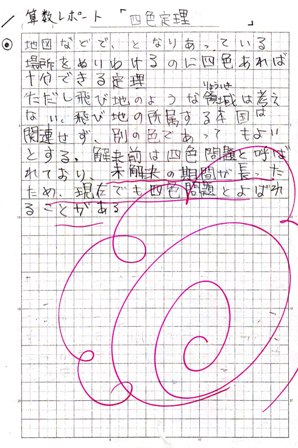 算数レポート 「四色定理」
地図などで、となりあっている
場所をぬりわけるのに四色あれば
十分できる定理
ただし飛び地のような領域は考え
りょういき
ない。飛び地の所属する本国は
関連せず、別の色であってもよい
とする。解決前は四色問題と呼ば
れており、未解決の期間が長かった
ため、現在でも四色問題とよばれ
ることがある